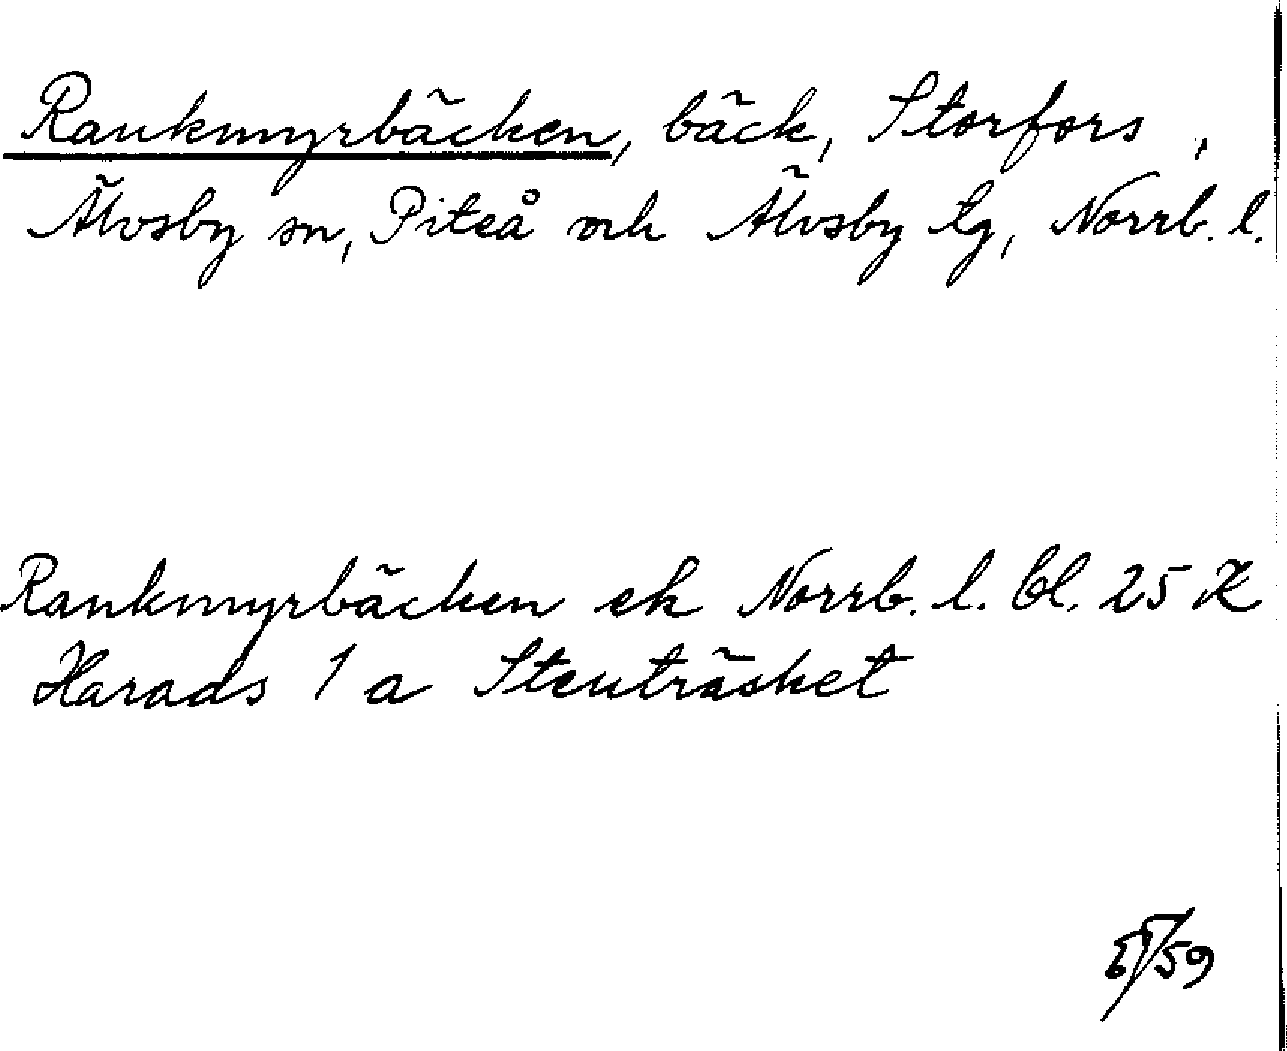 Rankmyrbäcken, bäck, Storfors,
Älvsby sn, Piteå och Älvsby tg, Norrb. l.
Rankmyrbäcken ek Norrb. l. bl. 25 K
Harads 1 a Stenträsket